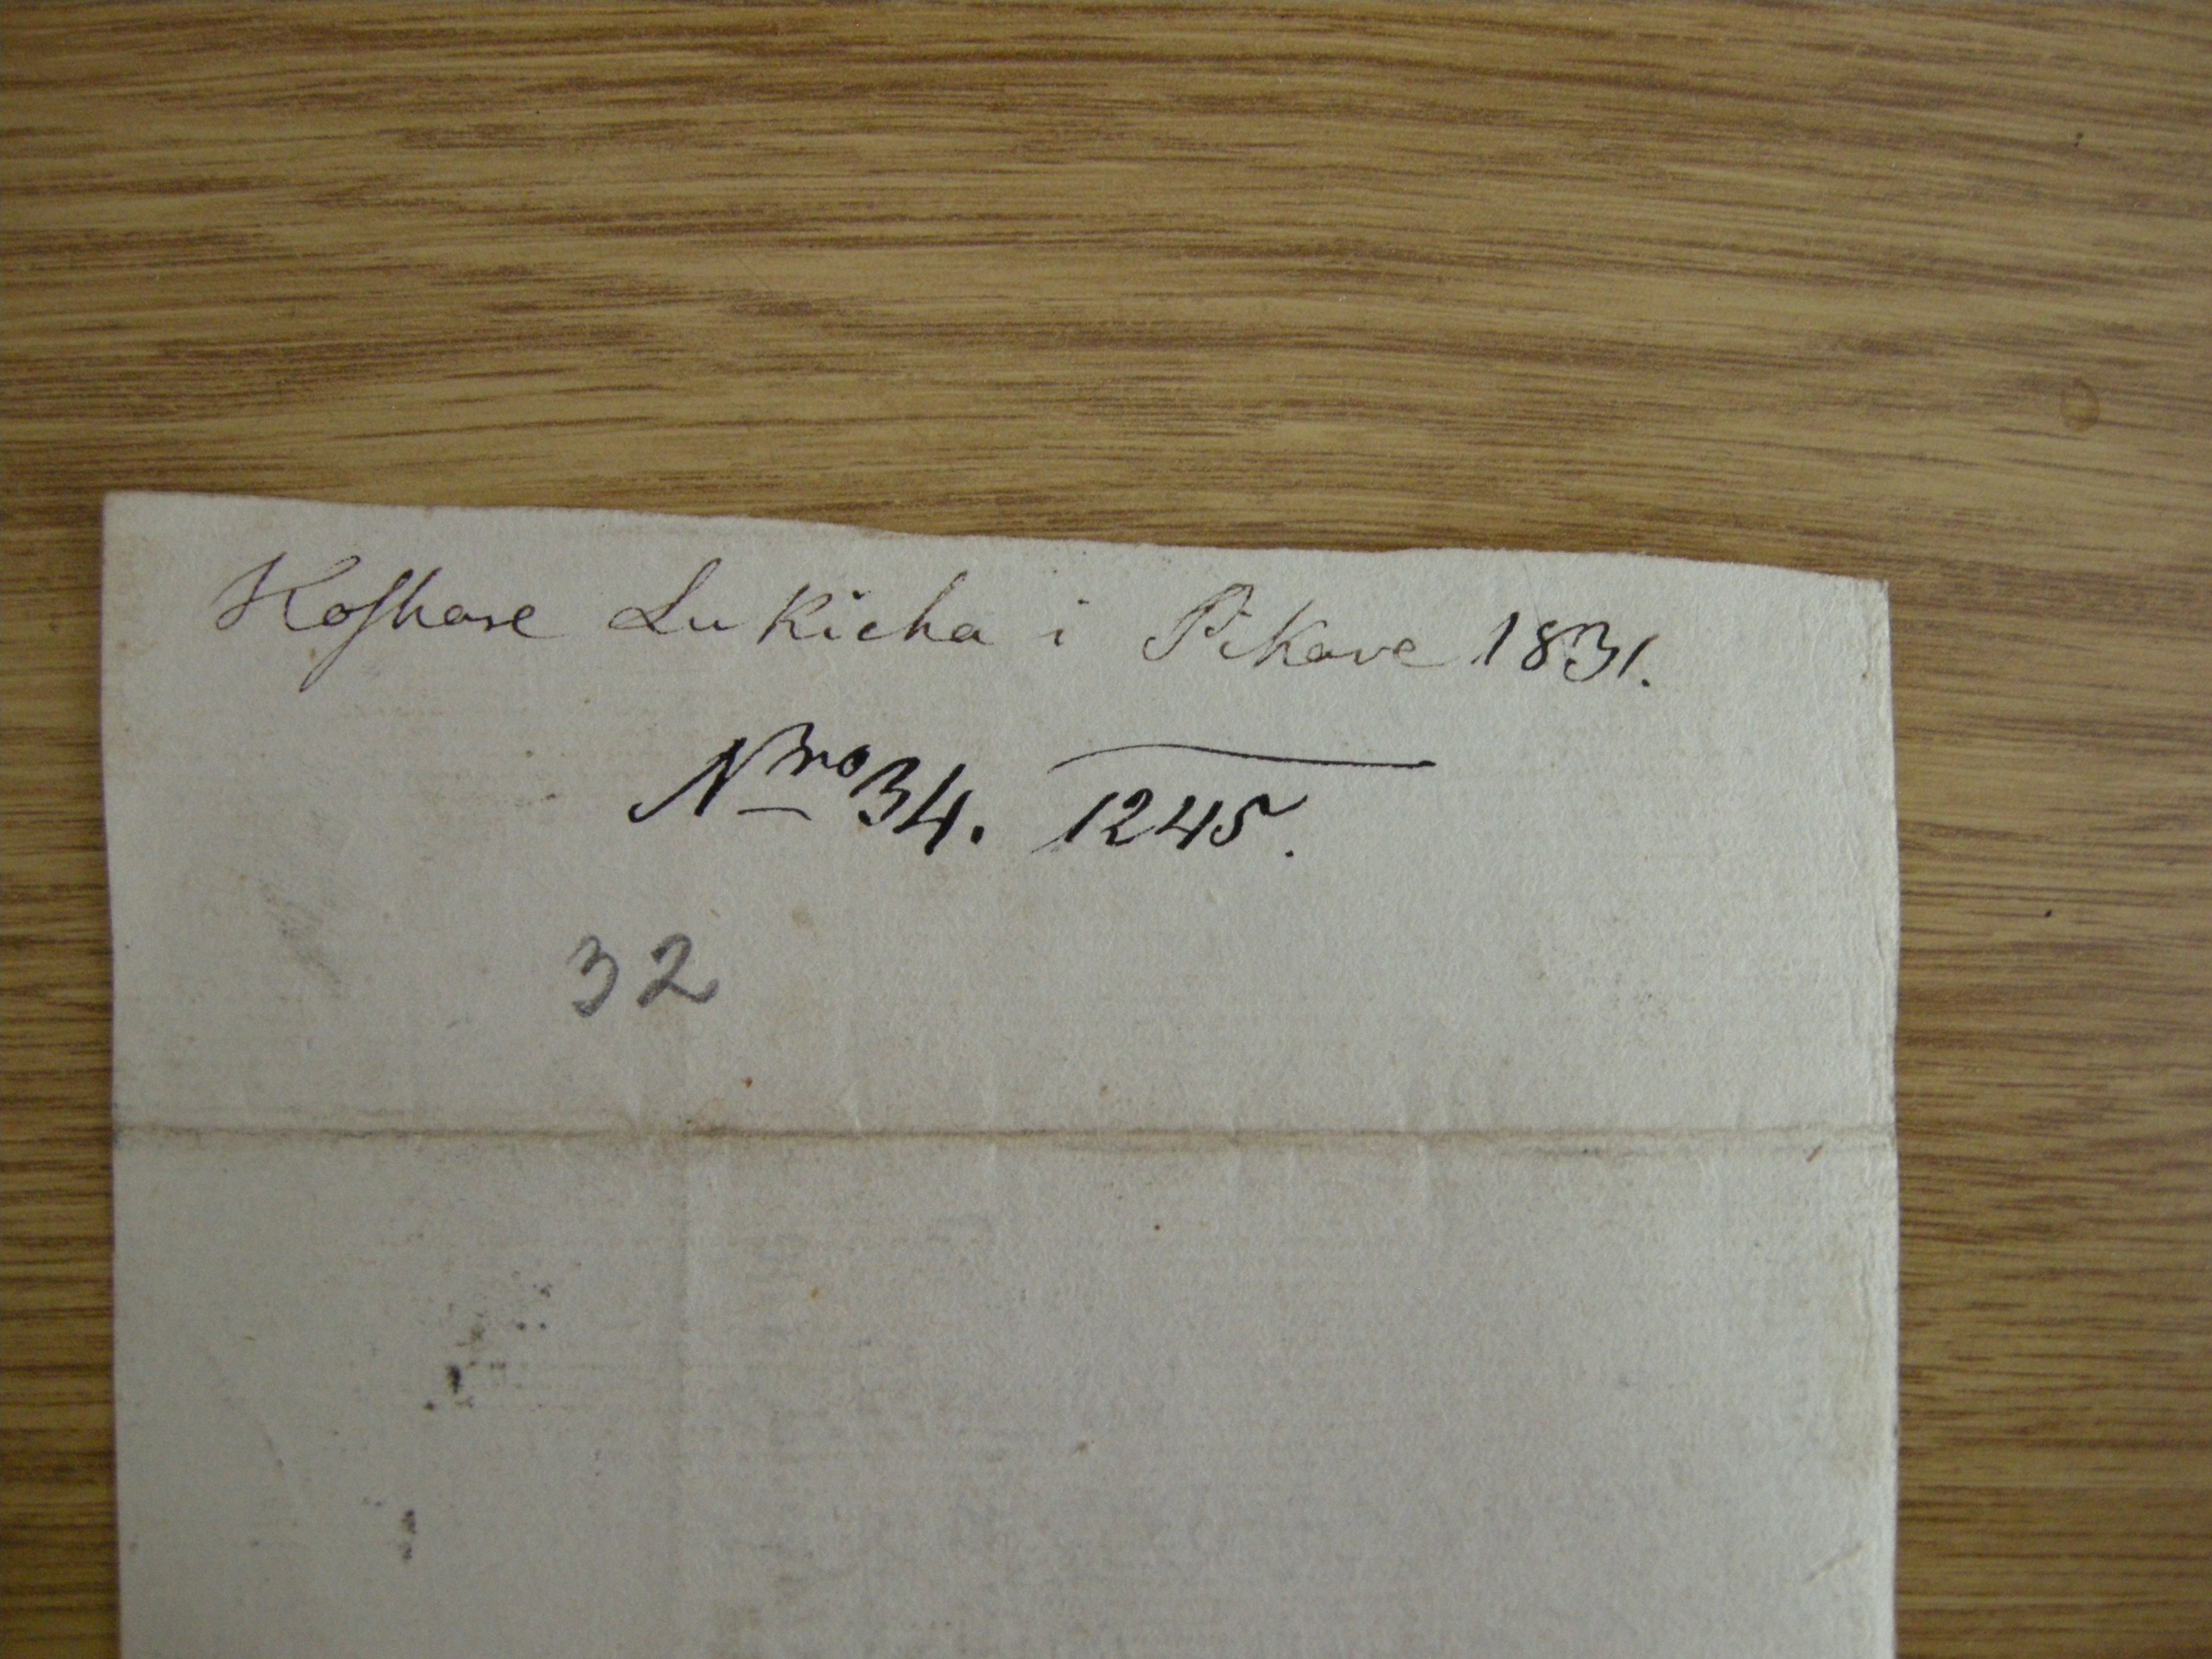 Koſhare Lukicha i Pikave 1831.
Nro 34. 1245.
32